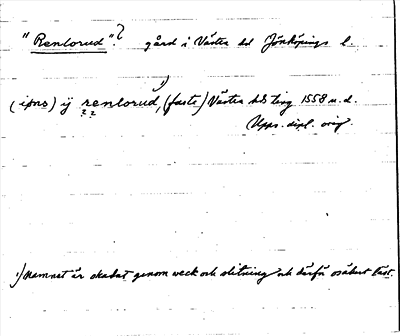 "Renlorud"? gård i Västra hd Jönköpings l.
(ipns) ij renlorud,¹) (faste) Västra hds ting 1558 u.d.
? ?
Upps. dipl. orig.
¹) Namnet är skadat genom veck och slitning och därför osäkert läst.